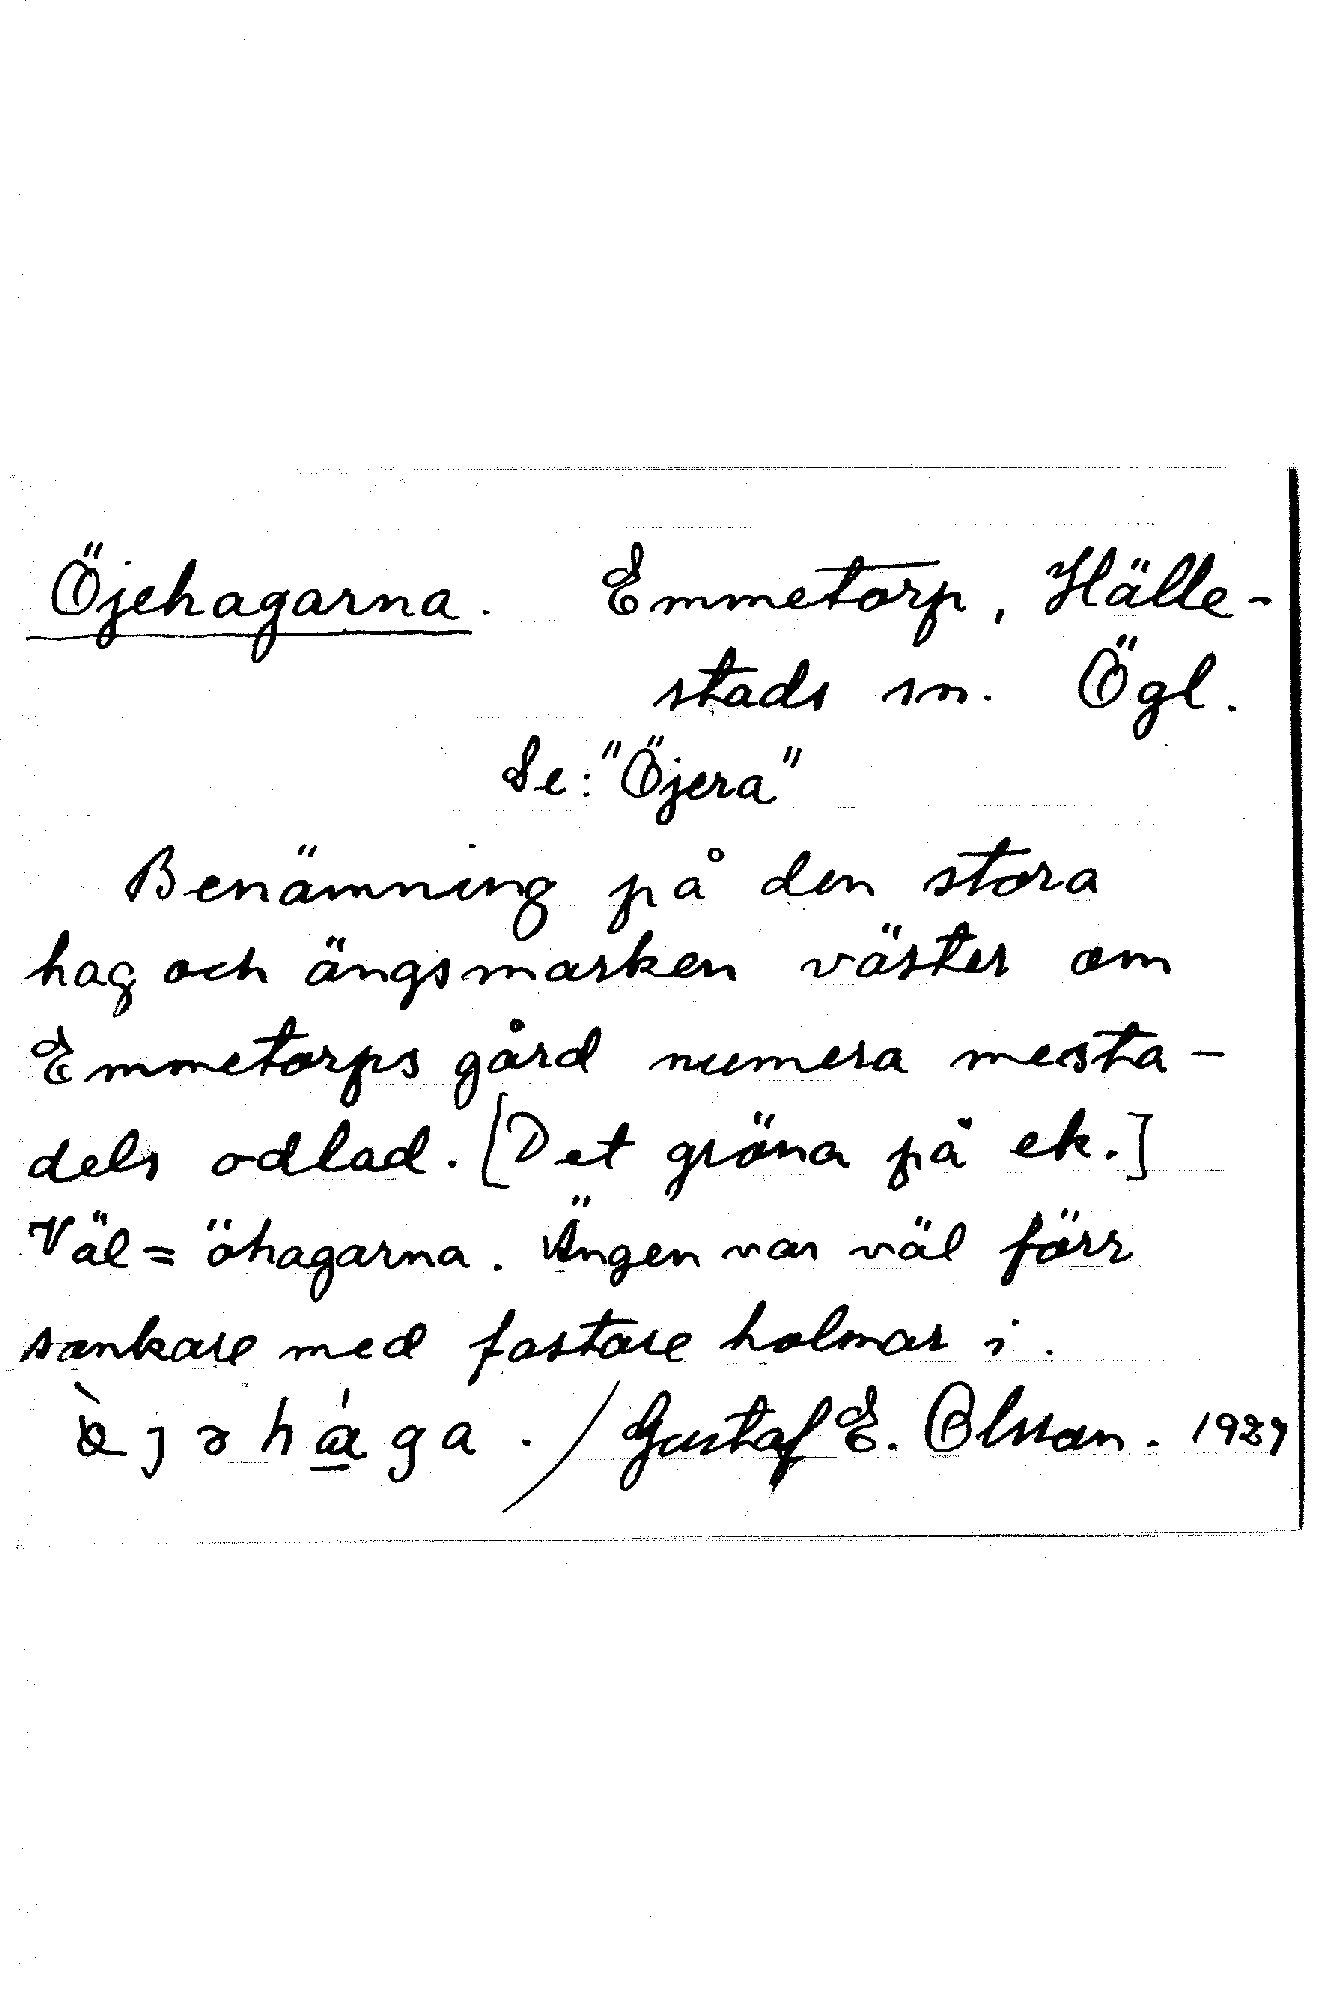 Öjehagarna. Emmetorp, Hälle-
stads sn. Ögl.
Se: "Öjera"
Benämning på den stora
hag och ängsmarken väster om
Emmetorps gård numera mesta-
dels odlad. [Det gröna på ek.]
Väl = öhagarna. Ängen var väl förr
sankare med fastare holmar i.
/ Gustaf E. Olsson. 1927